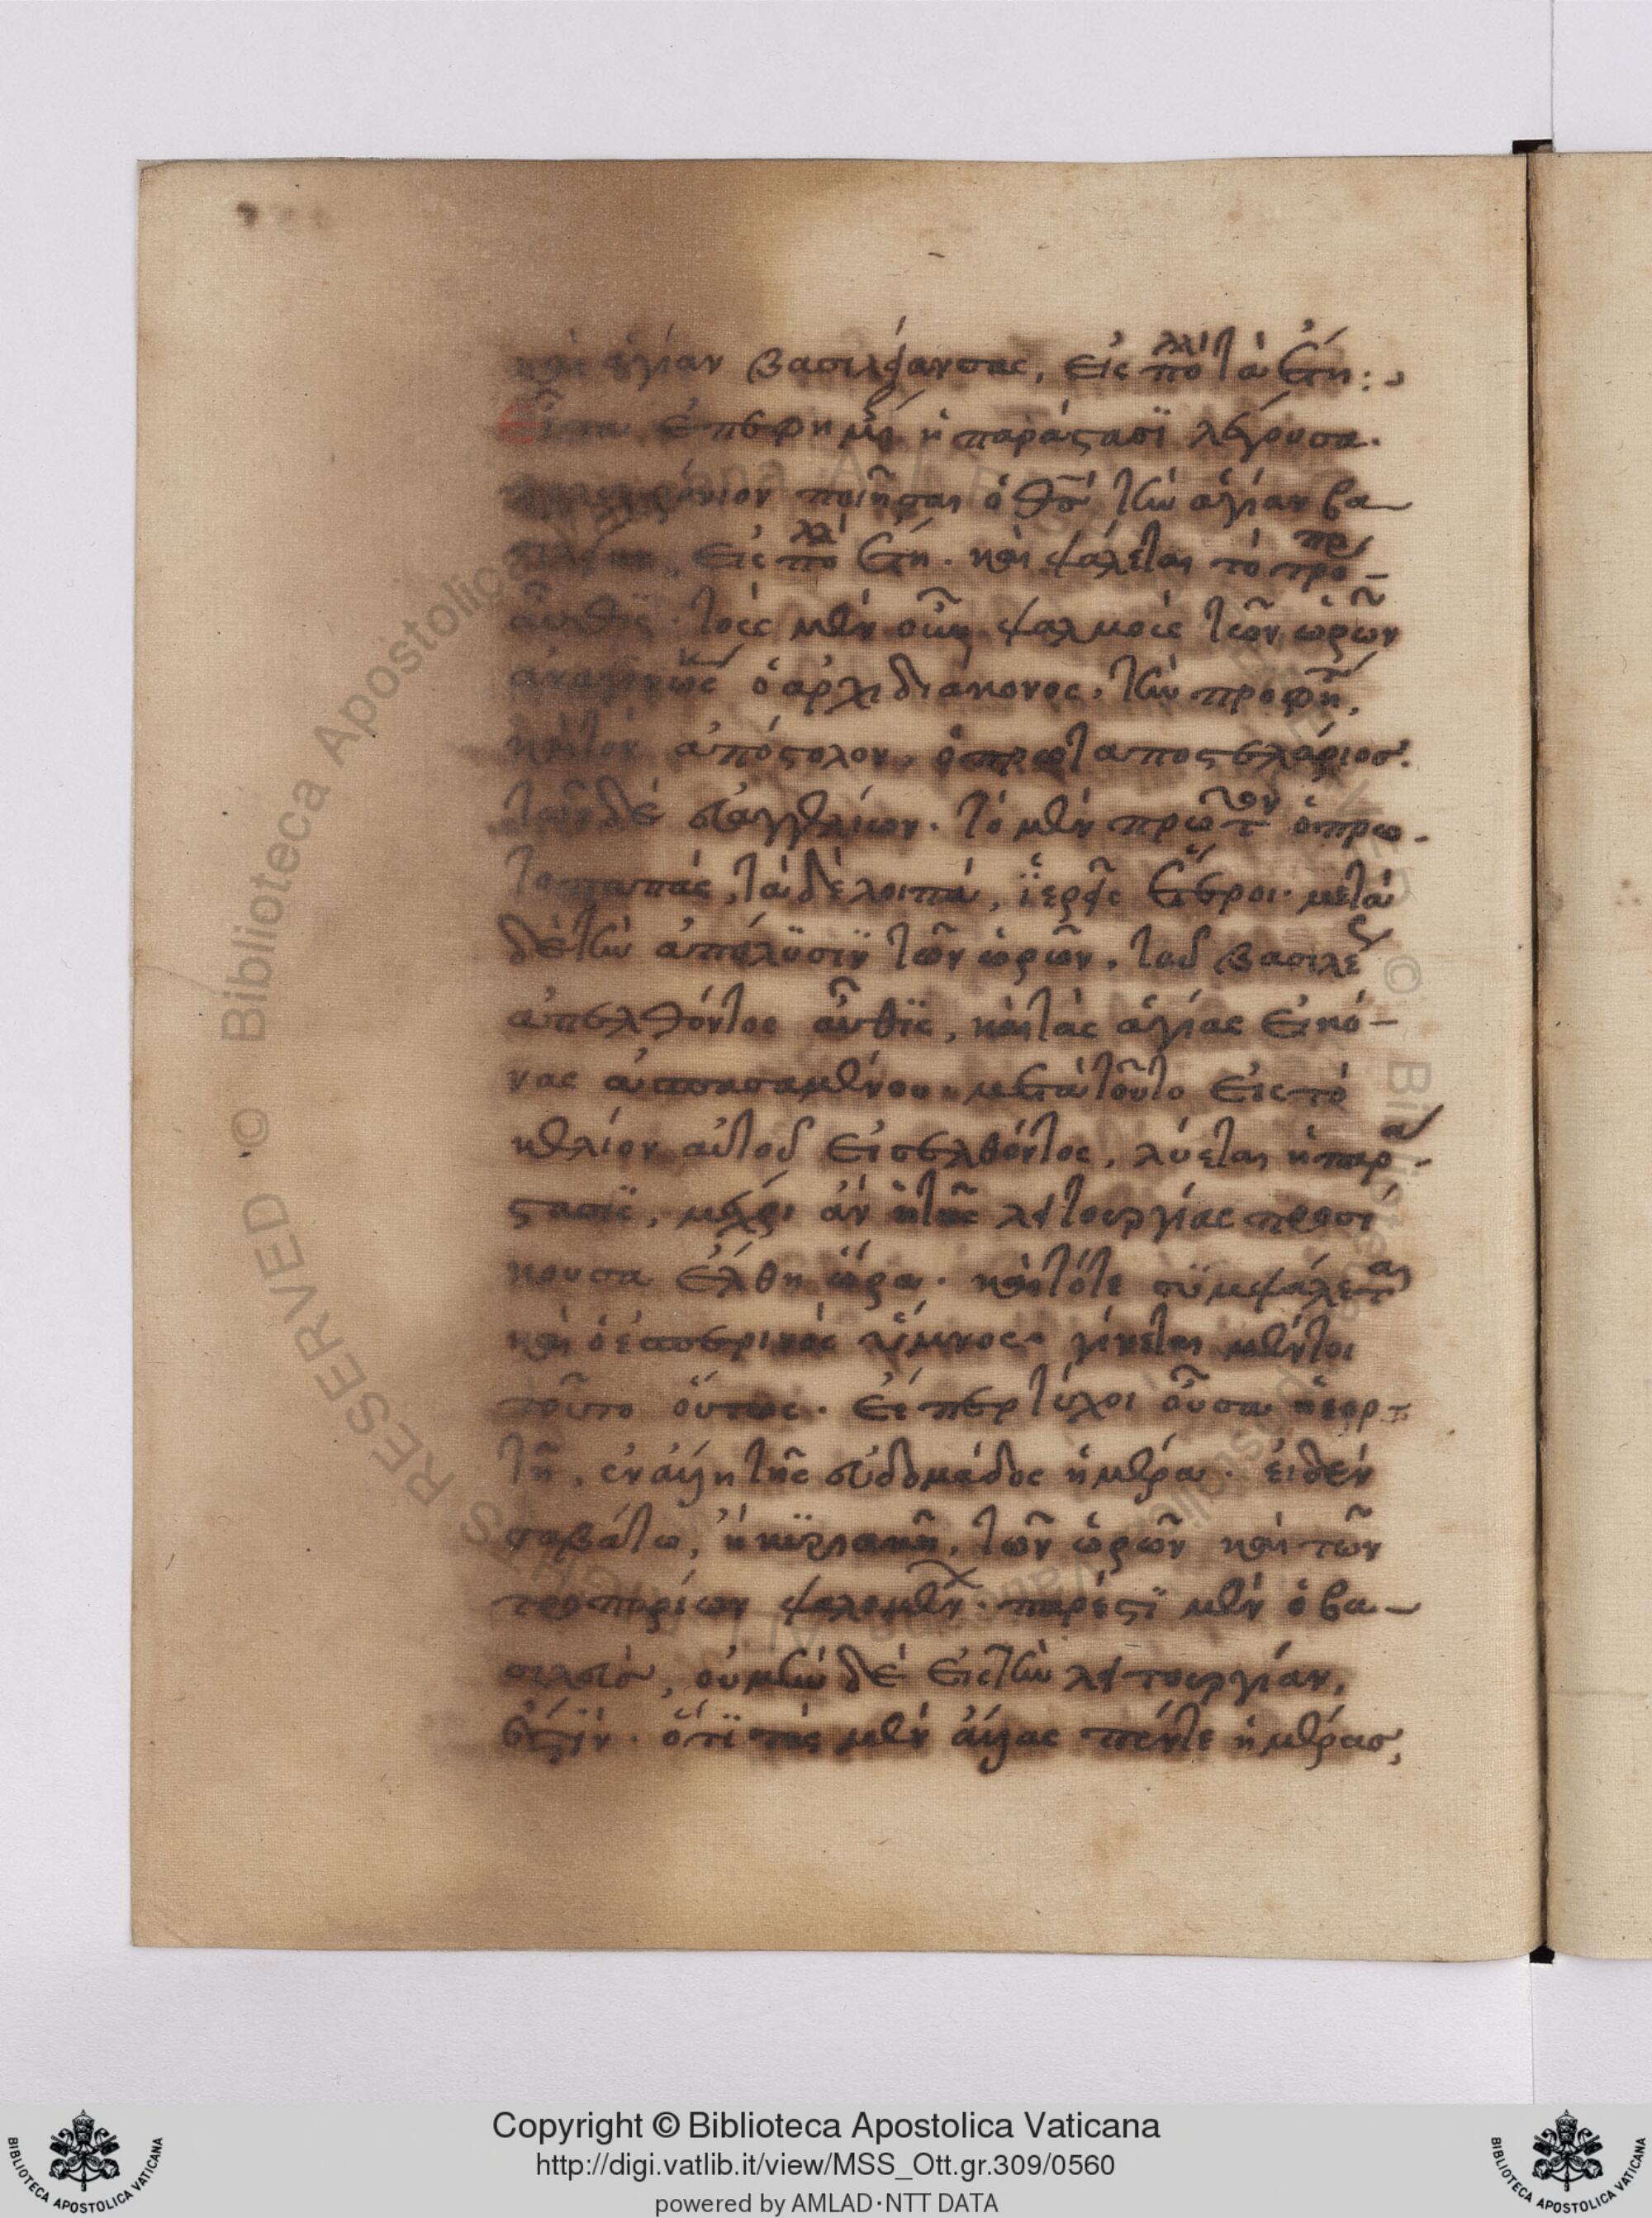 καὶ ἁγίαν βασιλείαν σας, εἰς πολλὰ τὰ ἔτη:
Εἶτα ἐπευφημεῖ ἡ παράστασις λέγουσα.
πολυχρόνιον ποιῆσαι ὁ θς τὴν ἁγίαν βα-
σιλείαν, εἰς πολλὰ ἔτη. καὶ ψάλεται τὸ τρο-
αὖθις. τοὺς μὲν οὖν ψαλμοὺς τῶν ὡρῶν
ἀναγινώσκει ὁ ἀρχιδιάκονος, τὴν προφη,
καὶ τὸν ἀπόστολον, ὁ πρωταποστολάριος.
τῶν δὲ εὐαγγελίων. τὸ μὲν πρῶτον ὁ πρω-
τοπαπάς, τὰ δὲ λοιπὰ, ἱερεῖς ἕτεροι. μετὰ
δὲ τὴν ἀπόλυσιν τῶν ὡρῶν, τοῦ βασιλέως
ἀπελθόντος αὖθις, καὶ τὰς ἁγίας εἰκό-
νας ἀσπασαμένου. μετὰ τοῦτο εἰς τὸ
κελλίον αὐτοῦ εἰσελθόντος, λύεται ἡ παρά-
στασις, μέχρι ἂν ἡ τῆς λειτουργίας προσή
κουσα ἔλθη ὥρα. καὶ τότε συμψάλεται
καὶ ὁ ἑσπερινὸς ὕμνος. γίνεται μέντοι
τοῦτο οὕτως. εἴπερ τύχοι οὖσα ἡ ἑορ-
τῆ, ἐν ἄλλη τῆς εὐδομάδος ἡμέρα. εἰ δ' ἐν
σαβάτω, ἢ κυριακῆ, τῶν ὡρῶν καὶ τῶν
τροπαρίων ψαλομένων. πάρεστι μὲν ὁ βα-
σιλεὺς, οὐ μὴν δὲ εἰς τὴν λειτουργίαν,
ἐστίν. ὅτι τὰς μὲν ἄλλας πέντε ἡμέρας,
Copyright © Biblioteca Apostolica Vaticana
http://digi.vatlib.it/view/MSS_Ott.gr.309/0560
powered by AMLAD·NTT DATA
BIBLIOTECA APOSTOLICA VATICANA
BIBLIOTECA APOSTOLICA VATICANA